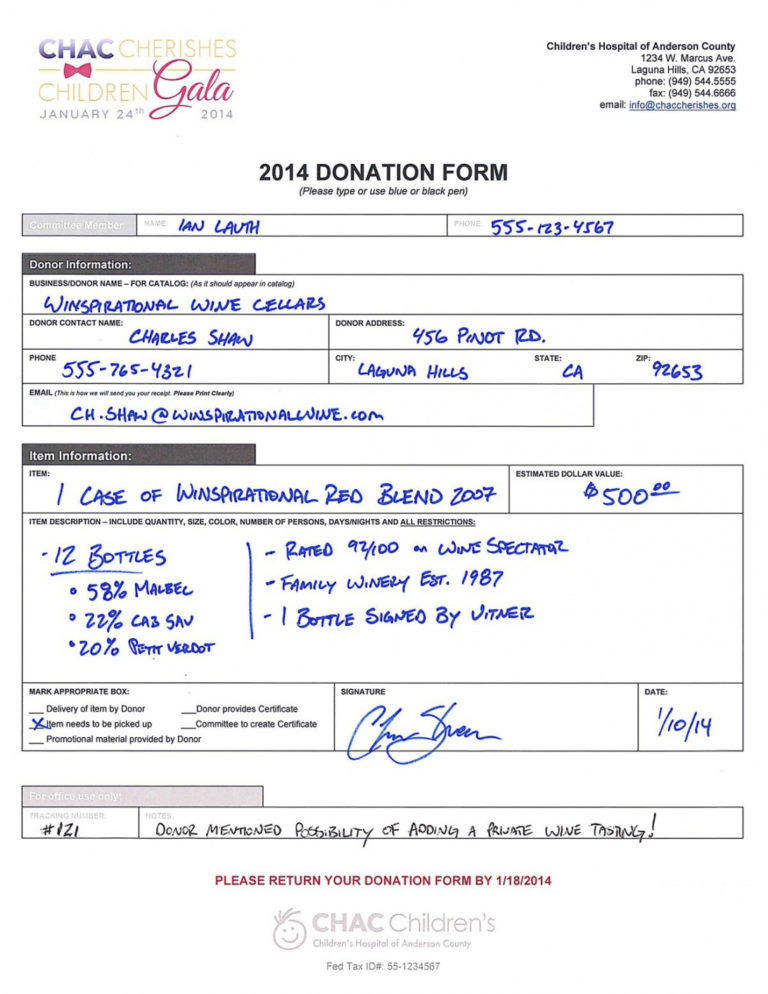 CHAC CHERISHES
CHILDREN Gala
JANUARY 24th 2014
Children's Hospital of Anderson County
1234 W. Marcus Ave.
Laguna Hills, CA 92653
phone: (949) 544.5555
fax: (949) 544.6666
email: info@chaccherishes.org
2014 DONATION FORM
(Please type or use blue or black pen)
Committee Member NAME: IAN LAUTH PHONE: 555-123-4567
Donor Information:
BUSINESS/DONOR NAME – FOR CATALOG: (As it should appear in catalog)
WINSPIRATIONAL WINE CELLARS
DONOR CONTACT NAME: DONOR ADDRESS:
CHARLES SHAW 456 PINOT RD.
PHONE CITY: STATE: ZIP:
555-765-4321 LAGUNA HILLS CA 92653
EMAIL (This is how we will send you your receipt. Please Print Clearly)
CH.SHAW@WINSPIRATIONALWINE.COM
Item Information:
ITEM: ESTIMATED DOLLAR VALUE:
1 CASE OF WINSPIRATIONAL RED BLEND 2007 $500.00
ITEM DESCRIPTION – INCLUDE QUANTITY, SIZE, COLOR, NUMBER OF PERSONS, DAYS/NIGHTS AND ALL RESTRICTIONS:
- 12 BOTTLES - RATED 92/100 on WINE SPECTATOR
• 58% MALBEC - FAMILY WINERY EST. 1987
• 22% CAB SAV - 1 BOTTLE SIGNED BY VITNER
• 20% PETIT VERDOT
MARK APPROPRIATE BOX: SIGNATURE DATE:
___ Delivery of item by Donor ___Donor provides Certificate
X Item needs to be picked up ___Committee to create Certificate 1/10/14
___ Promotional material provided by Donor
For office use only:
TRACKING NUMBER: NOTES:
#121 DONOR MENTIONED POSSIBILITY OF ADDING A PRIVATE WINE TASTING!
PLEASE RETURN YOUR DONATION FORM BY 1/18/2014
CHAC Children's
Children's Hospital of Anderson County
Fed Tax ID#: 55-1234567